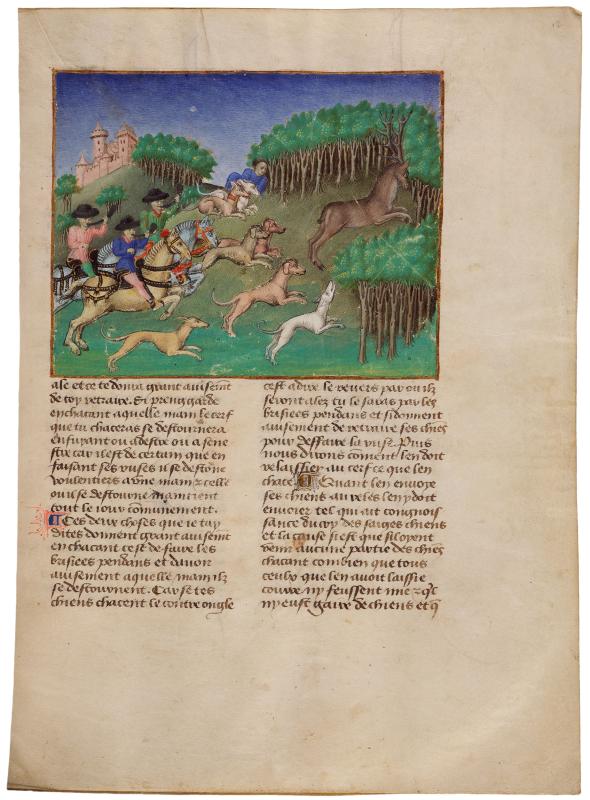 ale et ce te donra grant auisemt
de toy retraire. Si preng garde
en chacant a quelle main le cerf
que tu chaceras se destournera
en fuyant ou a destre ou a sene
stre car il est de certain que en
faisant ses ruses il se destorne
voulentiers a une main z celle
ou il se destourne maintient
tout le iour communement.
Ces deux choses que ie tay
dites donnent grant auisemt
en chacant cest de faire les
brisiees pendans et dauoir
auisement a quelle main ilz
se destournent. Car se tes
chiens chacent le contre ongle
cest a dire le reuers par ou ilz
seront alez tu le saras par les
brisiees pendans et si donnent
auisement de retraire ses chiens
pour deffaire la ruse. Puis
nous dirons coment len doit
relaissier au cerf ce que len
chace Quant len enuoye
ses chiens au reles len y doit
enuoier tel qui ait congnois
sance du roy des saiges chiens
et la cause si est que silz oyent
venir aucune partie des chiens
chacant combien que tous
ceulx que len auoit laissie
courre ny feussent mie z ql
ny eust gaire de chiens et q